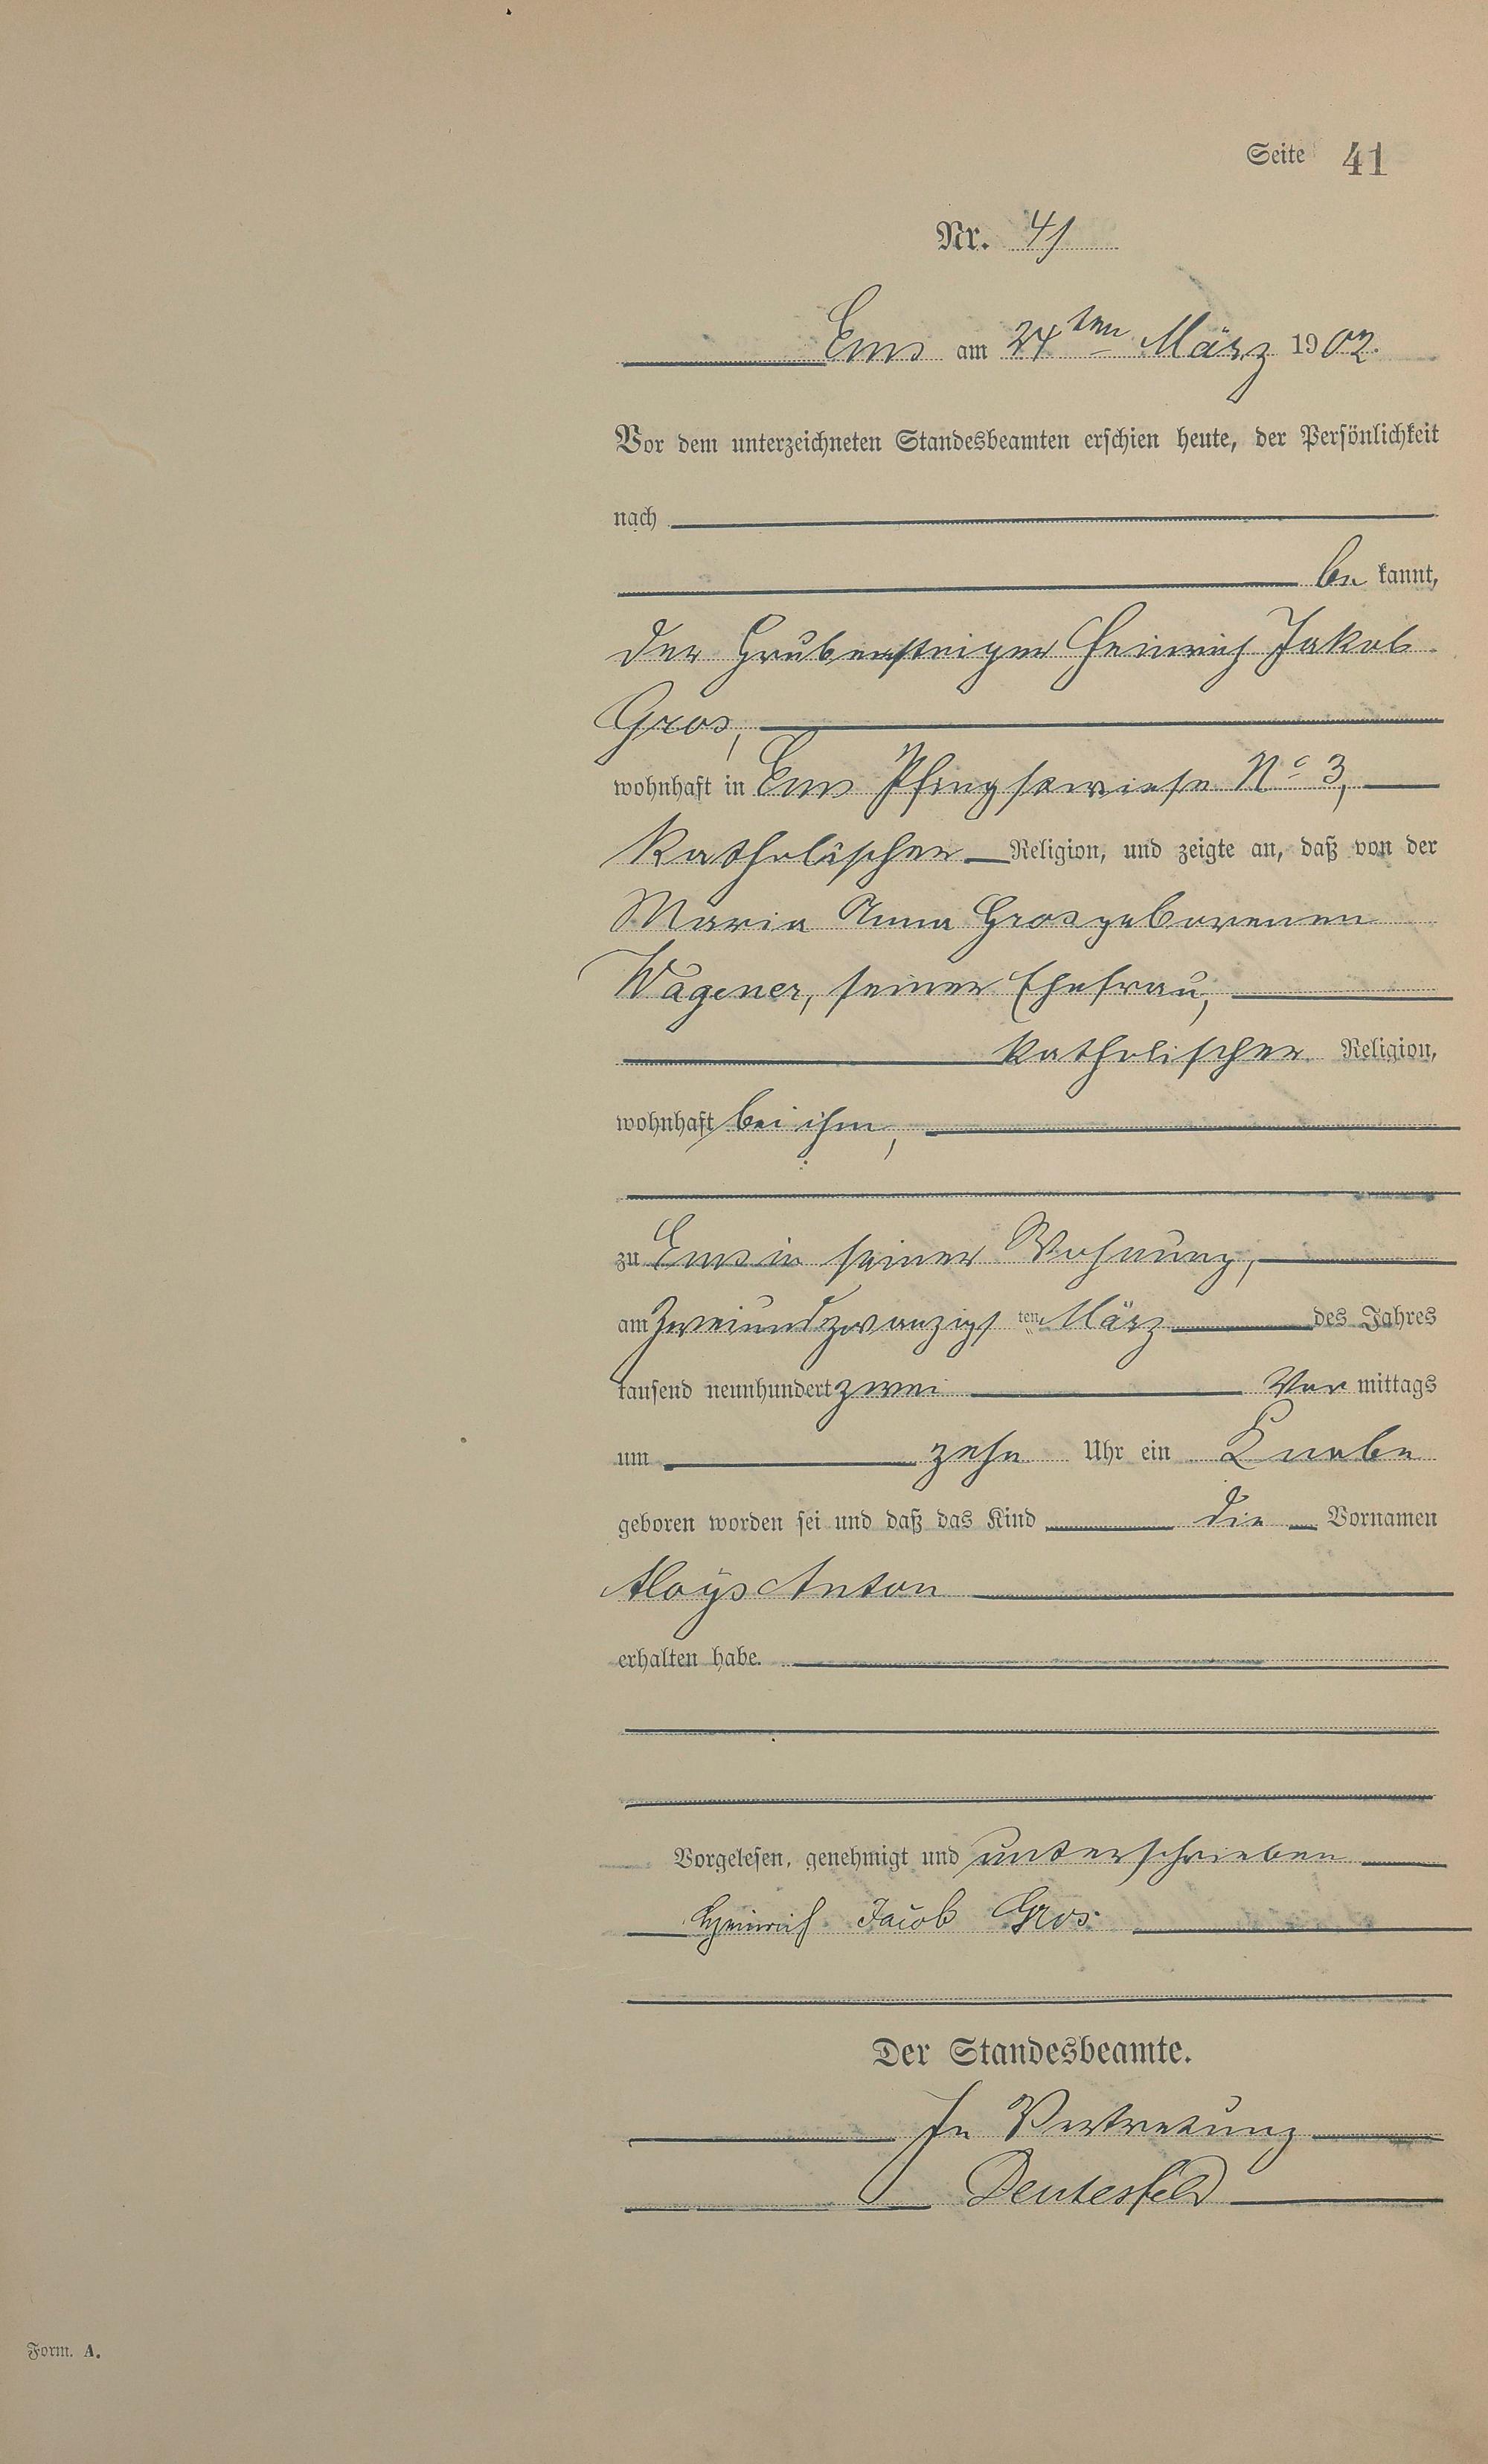 Seite 41
Nr. 41
Ems am 24ten März 1902.
Vor dem unterzeichneten Standesbeamten erschien heute, der Persönlichkeit
nach
be kannt,
der Grubensteiger Heinrich Jakob
Gros,
wohnhaft in Ems Pfingstwiese No 3,
katholischer Religion, und zeigte an, daß von der
Maria Anna Gros geborenen
Wagener, seiner Ehefrau,
katholischer Religion,
wohnhaft bei ihm,
zu Ems in seiner Wohnung,
am zweiundzwanzigsten März des Jahres
tausend neunhundert zwei Vor mittags
um zehn Uhr ein Knabe
geboren worden sei und daß das Kind die Vornamen
Aloys Anton
erhalten habe.
Vorgelesen, genehmigt und unterschrieben
Heinrich Jacob Gros
Der Standesbeamte.
In Vertretung
Deutesfeld
Form. A.